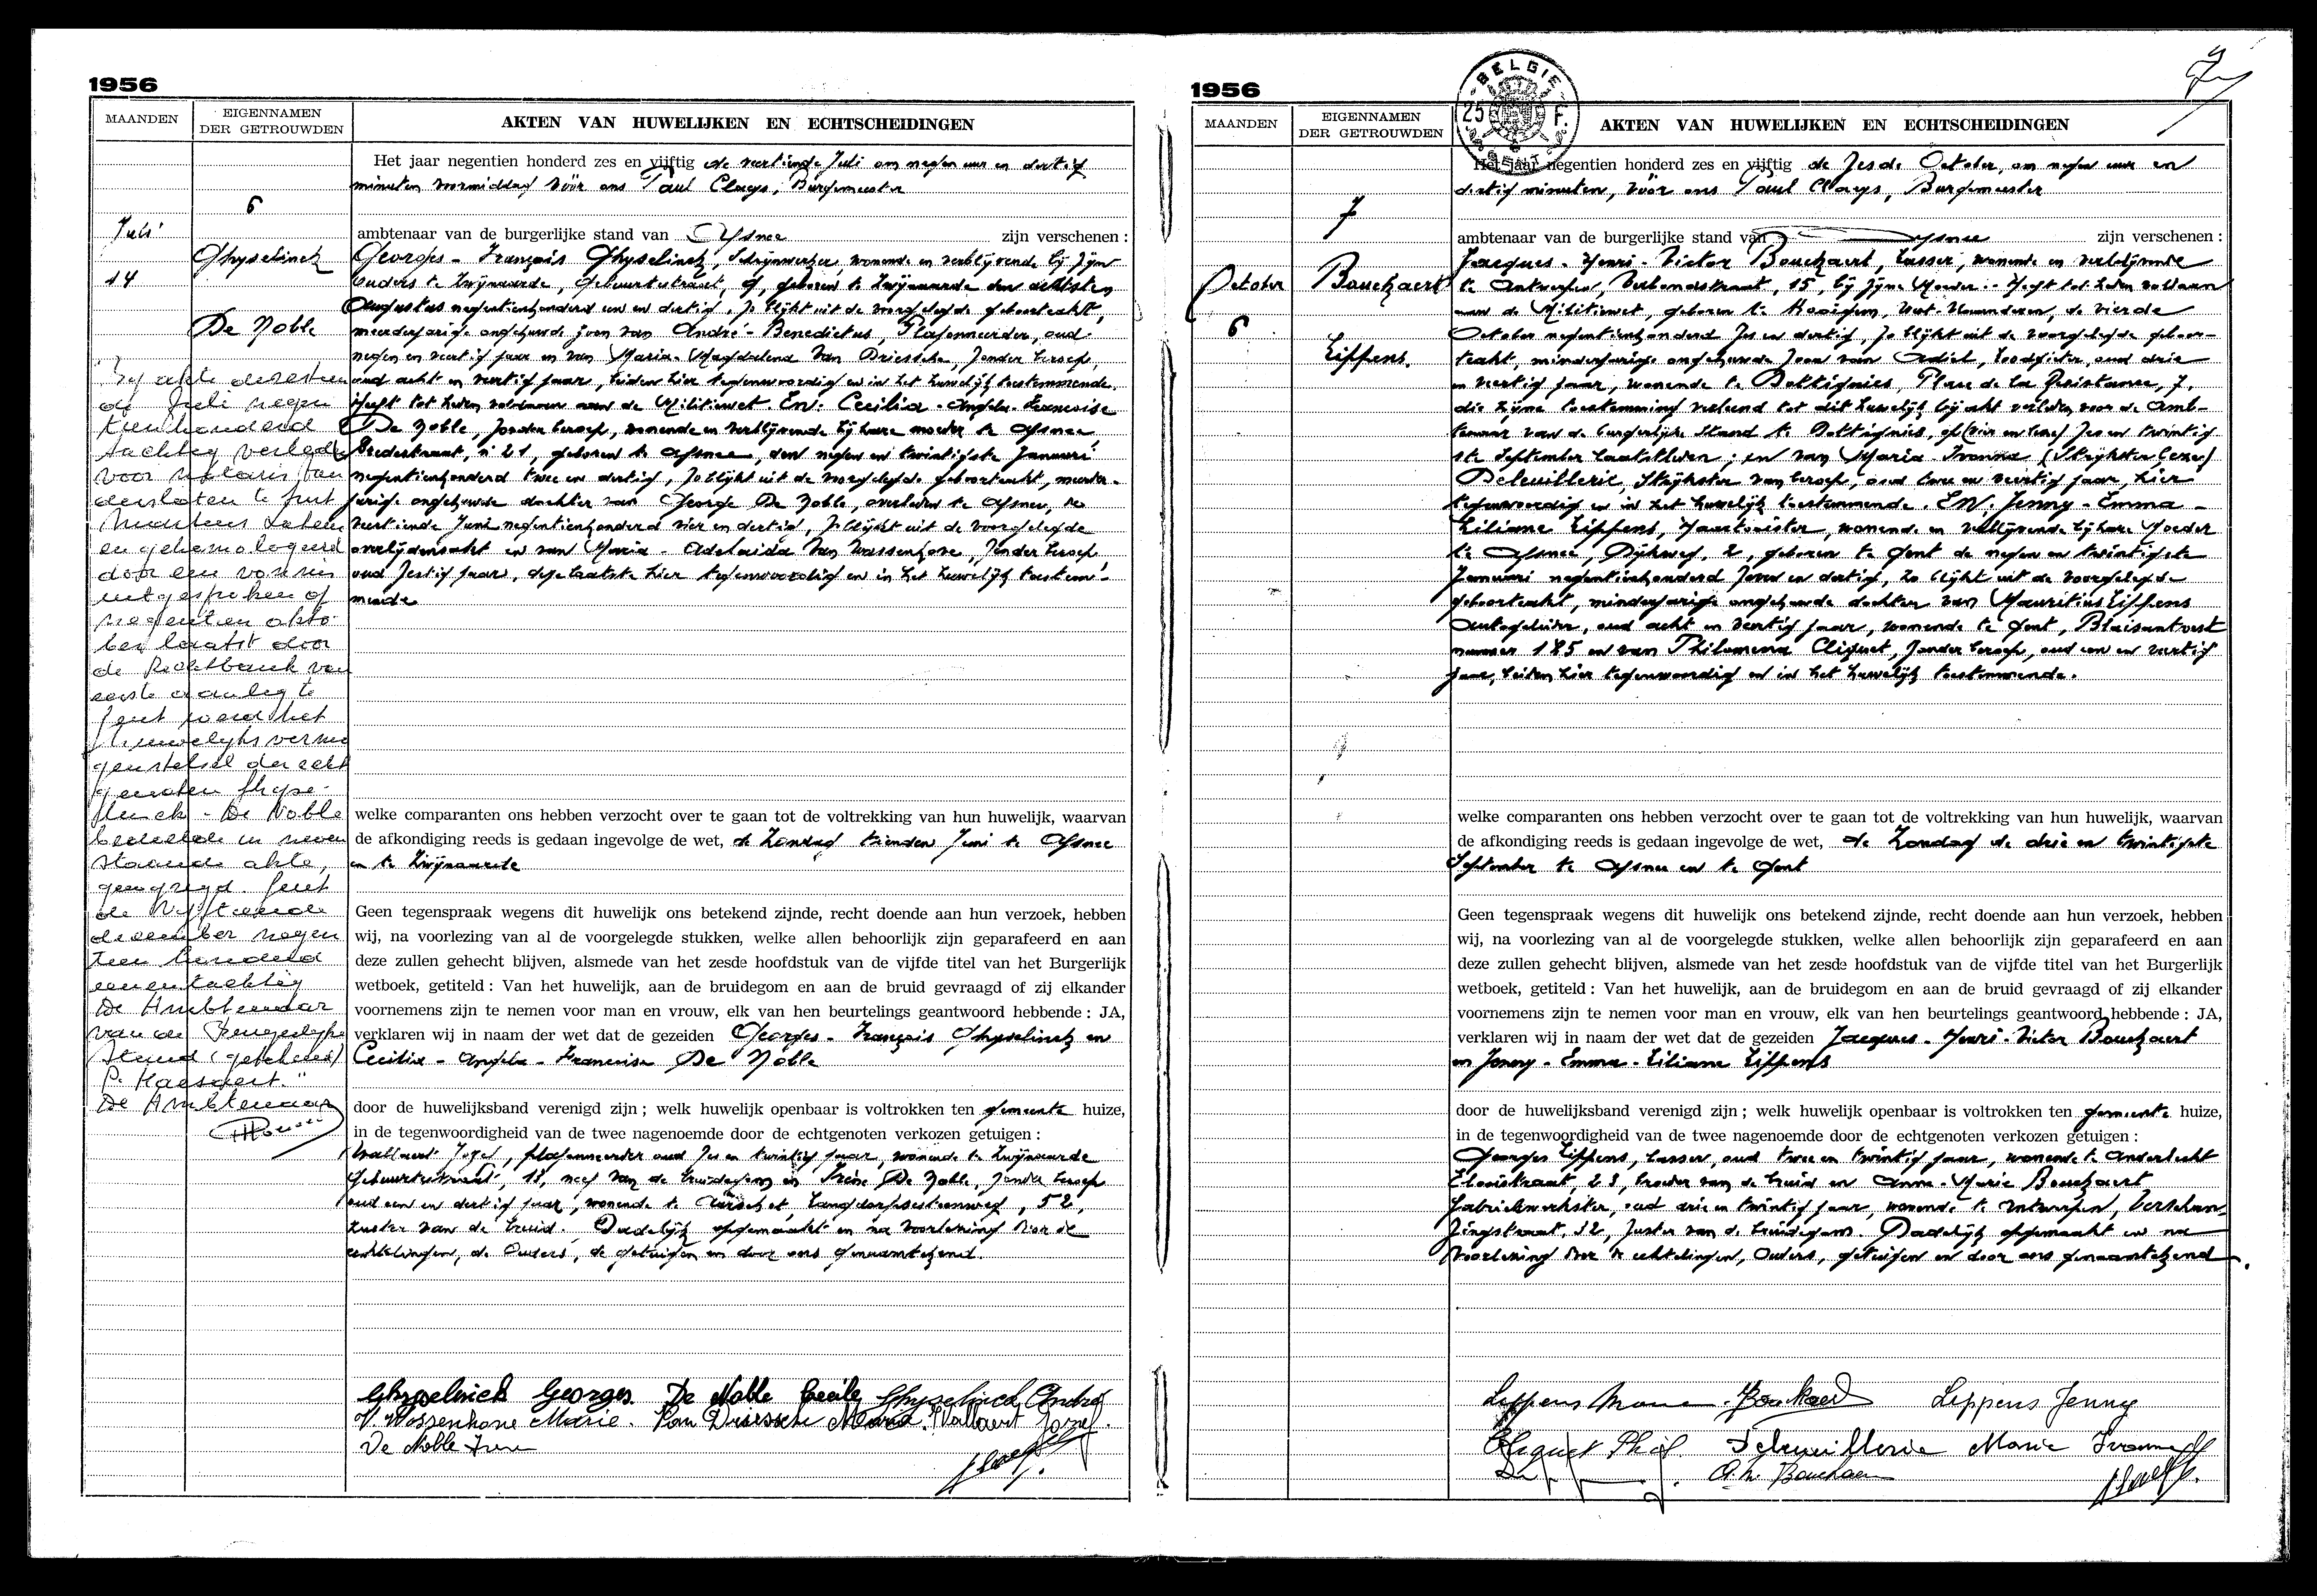 1956
MAANDEN
EIGENNAMEN
DER GETROUWDEN
AKTEN VAN HUWELIJKEN EN ECHTSCHEIDINGEN
Het jaar negentien honderd zes en vijftig de veertiende Juli om negen uur en dertig
minuten voormiddag vóór ons Paul Claeys, Burgemeester
6
Juli
14
Ghyselinck
De Noble
ambtenaar van de burgerlijke stand van Afsnee zijn verschenen :
Georges - François Ghyselinck, Schrijnwerker, wonende en verblijvende bij zijn
ouders te Zwijnaarde, Gebuurtestraat, 9, geboren te Zwijnaarde den achtsten
Augustus negentienhonderd een en dertig, zo blijkt uit de voorgelegde geboorteakt,
meerderjarige ongehuwde zoon van André - Benedictus, Plafonneerder, oud
negen en veertig jaar en van Maria - Magdalena Van Driessche, zonder beroep,
oud acht en veertig jaar, beiden hier tegenwoordig en in het huwelijk toestemmende.
Heeft tot heden voldaan aan de Militiewet. En: Cecilia - Angela - Francoise
De Noble, zonder beroep, wonende en verblijvende bij hare moeder te Afsnee,
Veerdestraat, n° 21, geboren te Afsnee, den negen en twintigste Januari
negentienhonderd twee en dertig, zo blijkt uit de voorgelegde geboorteakt, meerder-
jarige ongehuwde dochter van George De Noble, overleden te Afsnee, de
veertiende Juni negentienhonderd vier en dertig, zo blijkt uit de voorgelegde
overlijdensakt en van Maria - Adelaida Van Wassenhove, zonder beroep
oud zestig jaar, deze laatste hier tegenwoordig en in het huwelijk toestem-
mende
Bij akte de zestien
de Juli negen
tienhonderd
tachtig verleden
voor notaris Van
der sloten te Sint
Martens Latem
en gehomologeerd
door een vonnis
uitgesproken op
negentien okto
ber laatst door
de Rechtbank van
eerste aanleg te
Gent werd het
huwelyks vermo
genstelsel der echt
genoten Ghyse-
linck - De Noble
bedoeld in neven
staande akte,
gewijzigd. Gent
de vijftiende
december negen
tien honderd
eenentachtig
De Ambtenaar
van de Burgerlijke
Stand (getekend)
P. Haesaert."
De Ambtenaar
welke comparanten ons hebben verzocht over te gaan tot de voltrekking van hun huwelijk, waarvan
de afkondiging reeds is gedaan ingevolge de wet, de Zondag tienden Juni te Afsnee
en te Zwijnaarde
Geen tegenspraak wegens dit huwelijk ons betekend zijnde, recht doende aan hun verzoek, hebben
wij, na voorlezing van al de voorgelegde stukken, welke allen behoorlijk zijn geparafeerd en aan
deze zullen gehecht blijven, alsmede van het zesde hoofdstuk van de vijfde titel van het Burgerlijk
wetboek, getiteld : Van het huwelijk, aan de bruidegom en aan de bruid gevraagd of zij elkander
voornemens zijn te nemen voor man en vrouw, elk van hen beurtelings geantwoord hebbende : JA,
verklaren wij in naam der wet dat de gezeiden Georges - François Ghyselinck en
Cecilia - Angela - Francoise De Noble
door de huwelijksband verenigd zijn ; welk huwelijk openbaar is voltrokken ten gemeente huize,
in de tegenwoordigheid van de twee nagenoemde door de echtgenoten verkozen getuigen :
Wallaert Jozef, plafonneerder oud zes en twintig jaar, wonende te Zwijnaarde
Gebuurtestraat, 11, neef van de bruidegom en Irène De Noble, zonder beroep
oud een en dertig jaar, wonende te Aarschot, Langdorpsesteenweg, 52,
zuster van de bruid. Dadelijk opgemaakt en na voorlezing door de
echtelingen, de Ouders, de getuigen en door ons genaamtekend.
Ghyselinck Georges. De Noble Cecile Ghyselinck André
V. Wassenhove Marie. Van Driessche Maria. Wallaert Jozef.
De Noble Irene
1956
MAANDEN
EIGENNAMEN
DER GETROUWDEN
BELGIE
25 F.
AKTEN VAN HUWELIJKEN EN ECHTSCHEIDINGEN
Het jaar negentien honderd zes en vijftig de zesde October, om negen uur en
dertig minuten, vóór ons Paul Claeys, Burgemeester
7
October
6
Bouckaert
Lippens.
ambtenaar van de burgerlijke stand van Afsnee zijn verschenen :
Jacques - Henri - Victor Bouckaert, Lasser, wonende en verblijvende
te Antwerpen, Verbondstraat, 15, bij zijne Moeder. - Heeft tot heden voldaan
aan de Militiewet, geboren te Kooigem, West-Vlaanderen, de vierde
October negentienhonderd zes en dertig, zo blijkt uit de voorgelegde geboor-
teakt, minderjarige ongehuwde zoon van Adiel, loodgieter, oud drie
en veertig jaar, wonende te Dottignies, Place de la Résistance, 7,
die zijne toestemming verleend tot dit huwelijk bij akt verleden voor de Amb-
tenaar van de burgerlijke Stand te Dottignies, op zes en twintig
ste September laatstleden ; en van Maria - Ivonna
Deleuillerie, Strijkster van beroep, oud twee en veertig jaar, hier
tegenwoordig en in het huwelijk toestemmende. EN: Jenny - Emma -
Liliane Lippens, Haartooister, wonende en verblijvende bij hare Moeder
te Afsnee, Dijkweg, 2, geboren te Gent de negen en twintigste
Januari negentienhonderd zeven en dertig, zo blijkt uit de voorgelegde
geboorteakt, minderjarige ongehuwde dochter van Mauritius Lippens
Autogeleider, oud acht en veertig jaar, wonende te Gent, Blaisantvest
nummer 185 en van Philomena Cliquet, zonder beroep, oud een en veertig
jaar, beiden hier tegenwoordig en in het huwelijk toestemmende.
welke comparanten ons hebben verzocht over te gaan tot de voltrekking van hun huwelijk, waarvan
de afkondiging reeds is gedaan ingevolge de wet, de Zondag de drie en twintigste
September te Afsnee en te Gent
Geen tegenspraak wegens dit huwelijk ons betekend zijnde, recht doende aan hun verzoek, hebben
wij, na voorlezing van al de voorgelegde stukken, welke allen behoorlijk zijn geparafeerd en aan
deze zullen gehecht blijven, alsmede van het zesde hoofdstuk van de vijfde titel van het Burgerlijk
wetboek, getiteld : Van het huwelijk, aan de bruidegom en aan de bruid gevraagd of zij elkander
voornemens zijn te nemen voor man en vrouw, elk van hen beurtelings geantwoord hebbende : JA,
verklaren wij in naam der wet dat de gezeiden Jacques - Henri - Victor Bouckaert
en Jenny - Emma - Liliane Lippens
door de huwelijksband verenigd zijn ; welk huwelijk openbaar is voltrokken ten gemeente huize,
in de tegenwoordigheid van de twee nagenoemde door de echtgenoten verkozen getuigen :
Georges Lippens, Lasser, oud twee en twintig jaar, wonende te Anderlecht
Clovisstraat, 23, broeder van de bruid en Anna - Marie Bouckaert
fabriekwerkster, oud drie en twintig jaar, wonende te Antwerpen, Verschan
zingstraat, 32, zuster van de bruidegom. Dadelijk opgemaakt en na
voorlezing door de echtelingen, Ouders, getuigen en door ons genaamtekend.
Lippens Bouckaert Lippens Jenny
Cliquet Phil. Deleuillerie Marie Ivonne
A.M. Bouckaert